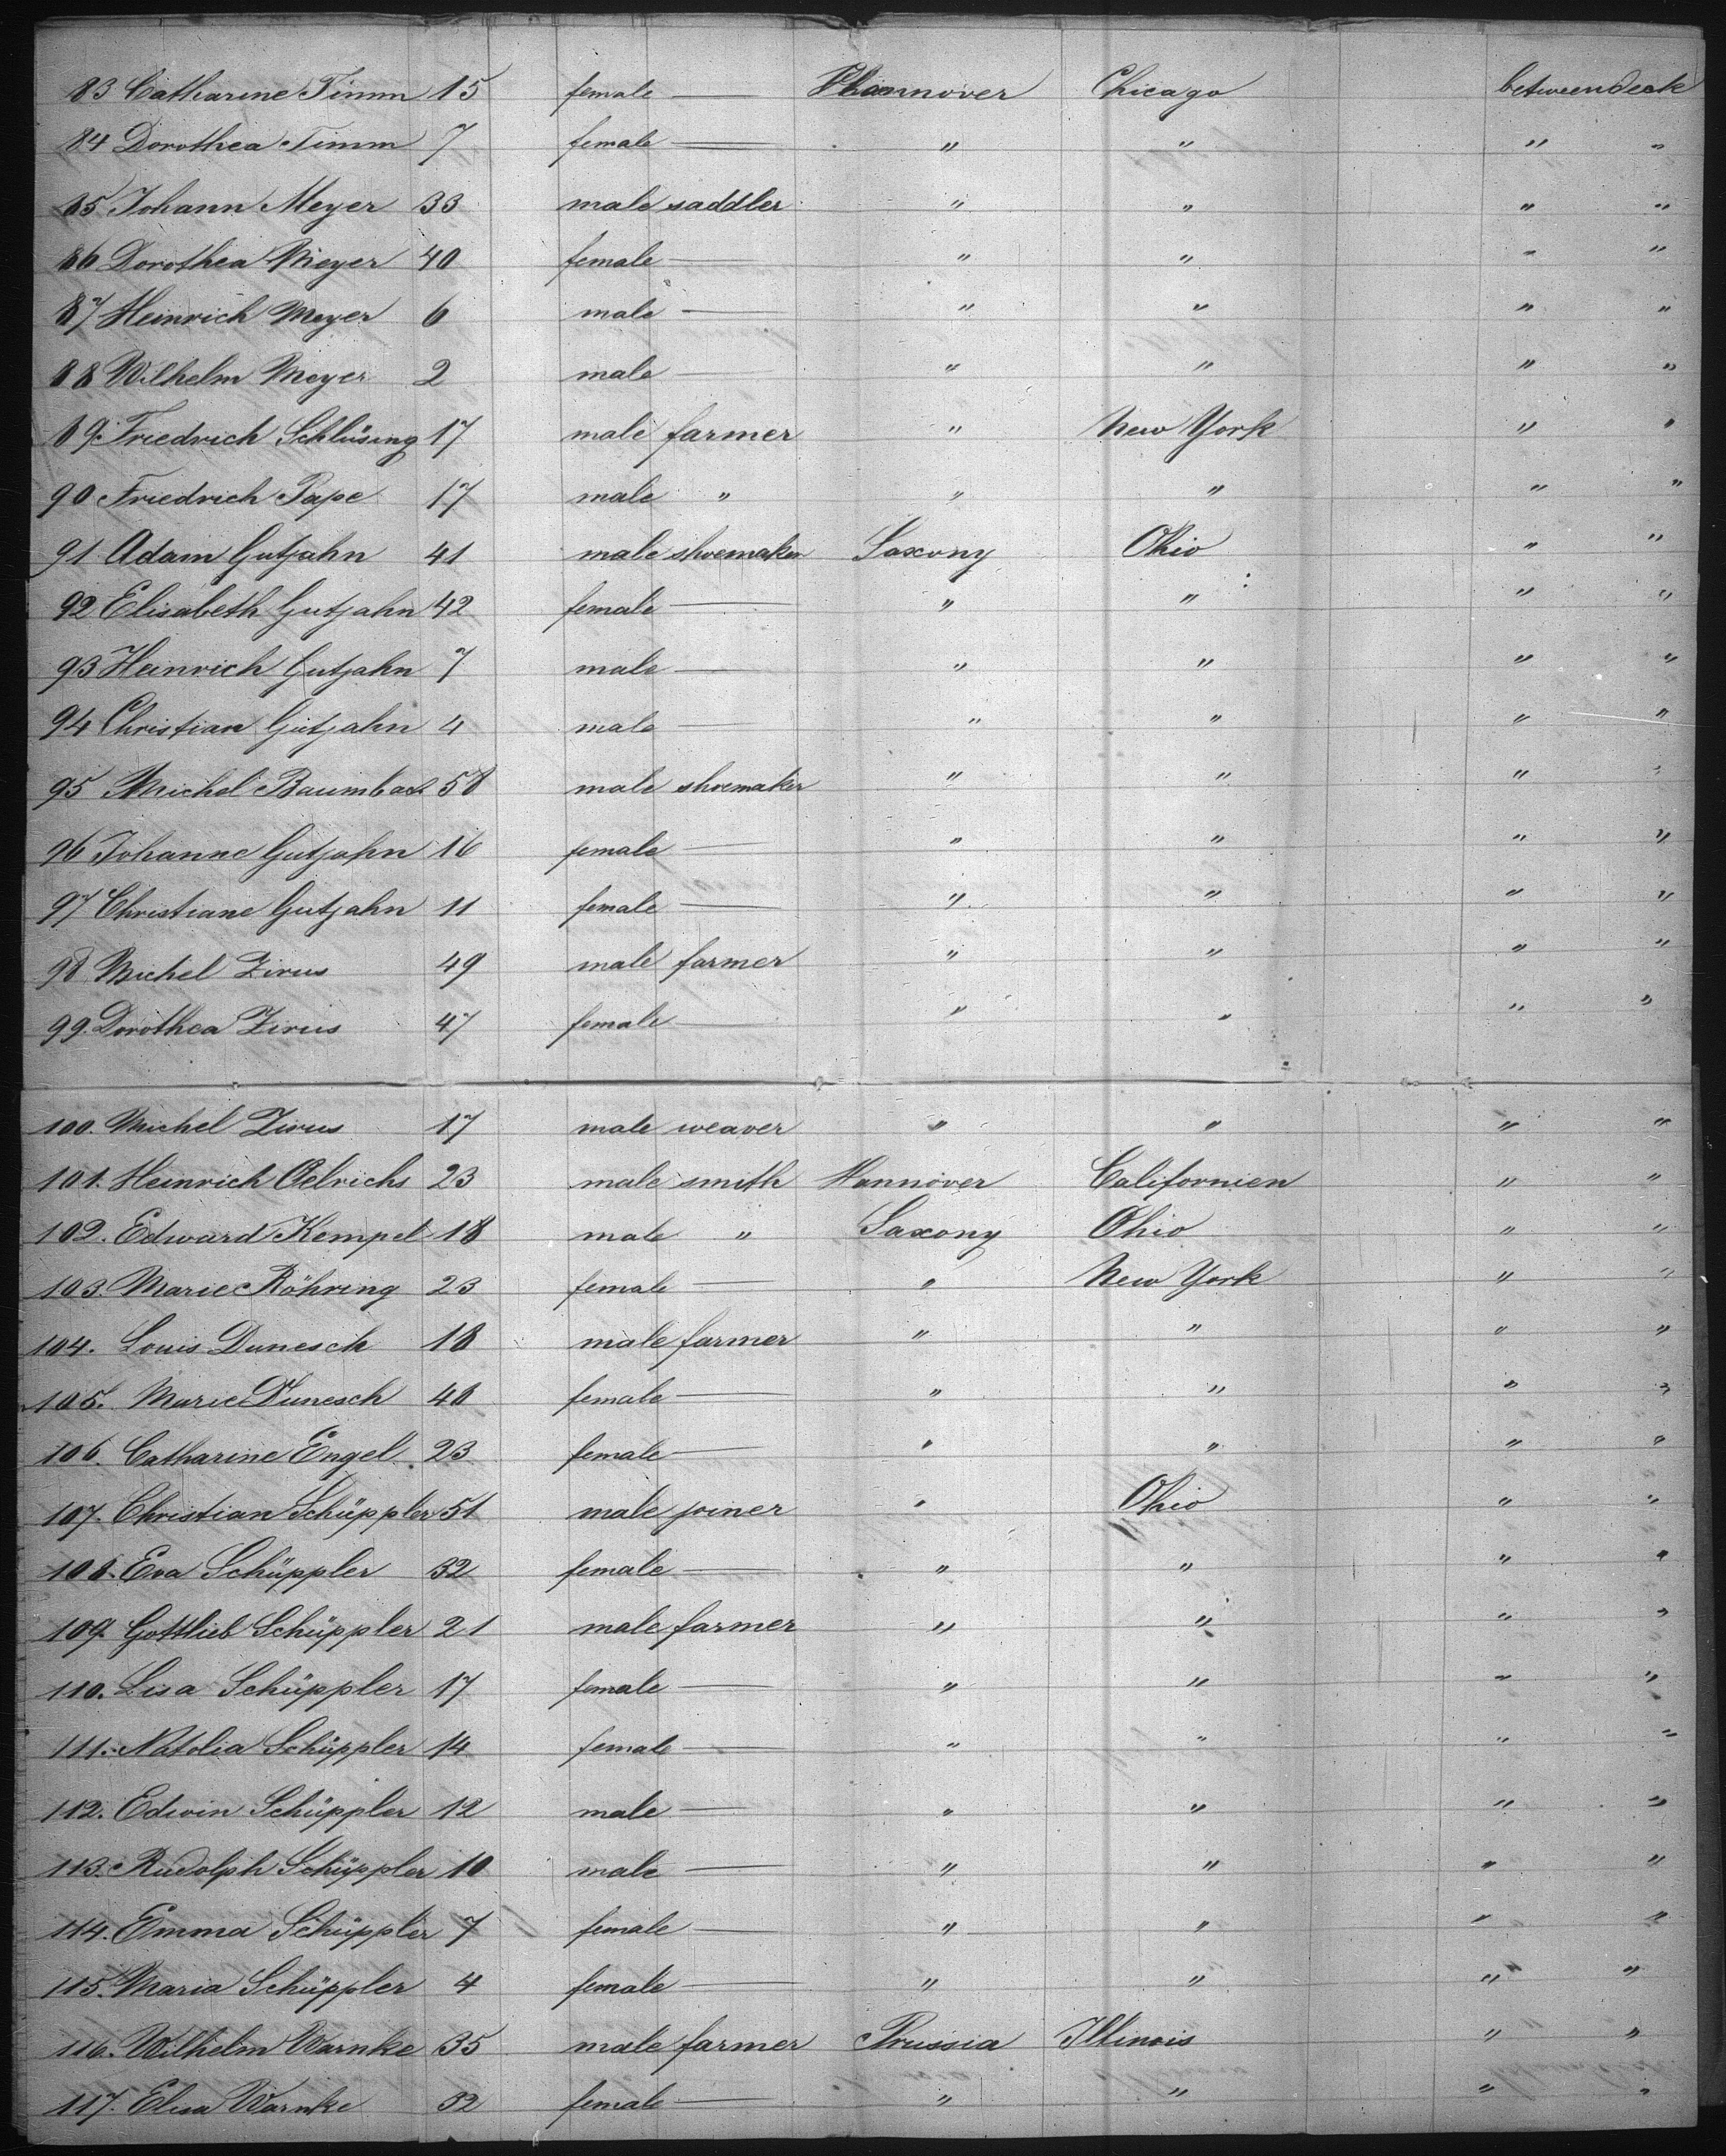 83 Catharine Timm 15 female — Hannover Chicago betweendeck
84 Dorothea Timm 7 female — " " " "
85 Johann Meyer 33 male saddler " " " "
86 Dorothea Meyer 40 female — " " " "
87 Heinrich Meyer 6 male — " " " "
88 Wilhelm Meyer 2 male — " " " "
89. Friedrich Schlüsing 17 male farmer " New York " "
90 Friedrich Pape 17 male " " " " "
91. Adam Gutjahn 41 male shoemaker Saxony Ohio " "
92 Elisabeth Gutjahn 42 female — " " " "
93 Heinrich Gutjahn 7 male — " " " "
94 Christian Gutjahn 4 male — " " " "
95 Michel Baumbach 58 male shoemaker " " " "
96 Johanne Gutjahn 16 female — " " " "
97 Christiane Gutjahn 11 female — " " " "
98 Michel Zirus 49 male farmer " " " "
99. Dorothea Zirus 47 female — " " " "
100. Michel Zirus 17 male weaver " " " "
101. Heinrich Oelrichs 23 male smith Hannover Californien " "
102. Edward Kempel 18 male " Saxony Ohio " "
103. Marie Röhring 23 female — " New York " "
104. Louis Dunesch 18 male farmer " " " "
105. Marie Dunesch 48 female — " " " "
106. Catharine Engel 23 female — " " " "
107. Christian Schüppler 51 male joiner " Ohio " "
108. Eva Schüppler 32 female — " " " "
109. Gottlieb Schüppler 21 male farmer " " " "
110. Lisa Schüppler 17 female — " " " "
111. Natolia Schüppler 14 female — " " " "
112. Edwin Schüppler 12 male — " " " "
113. Rudolph Schüppler 10 male — " " " "
114. Emma Schüppler 7 female — " " " "
115. Maria Schüppler 4 female — " " " "
116. Wilhelm Warnke 35 male farmer Prussia Illinois " "
117. Elisa Warnke 32 female — " " " "